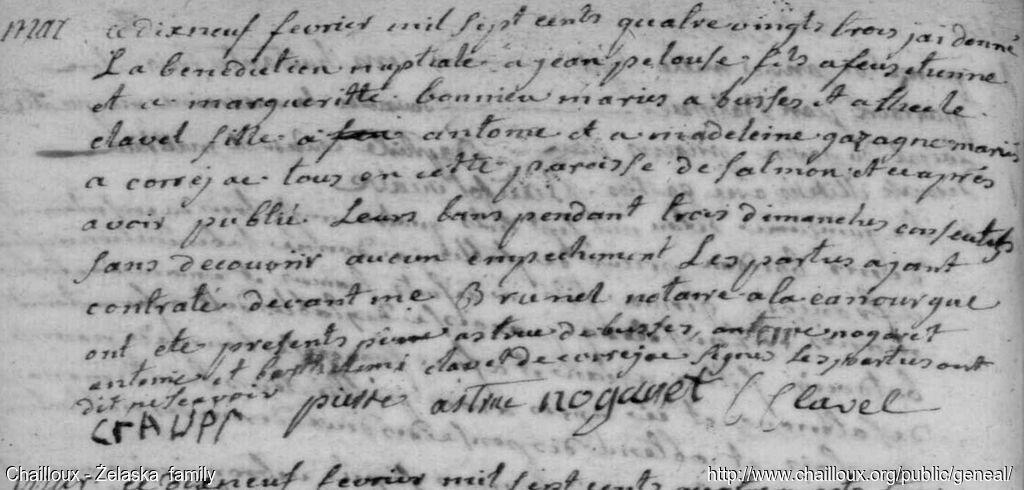 mar ce dixneuf fevrier mil sept cents quatre vingts trois jai donné
La benediction nuptiale a jean pelouse fils a feus etienne
et a margueritte bonnieu maries a busses et a
clavel fille a feu antoine et a madeleine gazagne maries
a correjac tous en cette paroisse de salmon et ce aprés
avoir publié Leurs bans pendant trois dimanches consecutifs
sans decouvrir aucun empechement Les parties ajant
contraté devant me Brunel notaire a la canourgue
ont ete presents pierre astruc de busses, antoine nogaret
antoine et barthelemi clavel de correjac signes Les parties ont
dit ne scavoir pierre astruc nogaret Clavel
Chailloux - Żelaska family
http://www.chailloux.org/public/geneal/
ce dixneuf fevrier mil sept cents